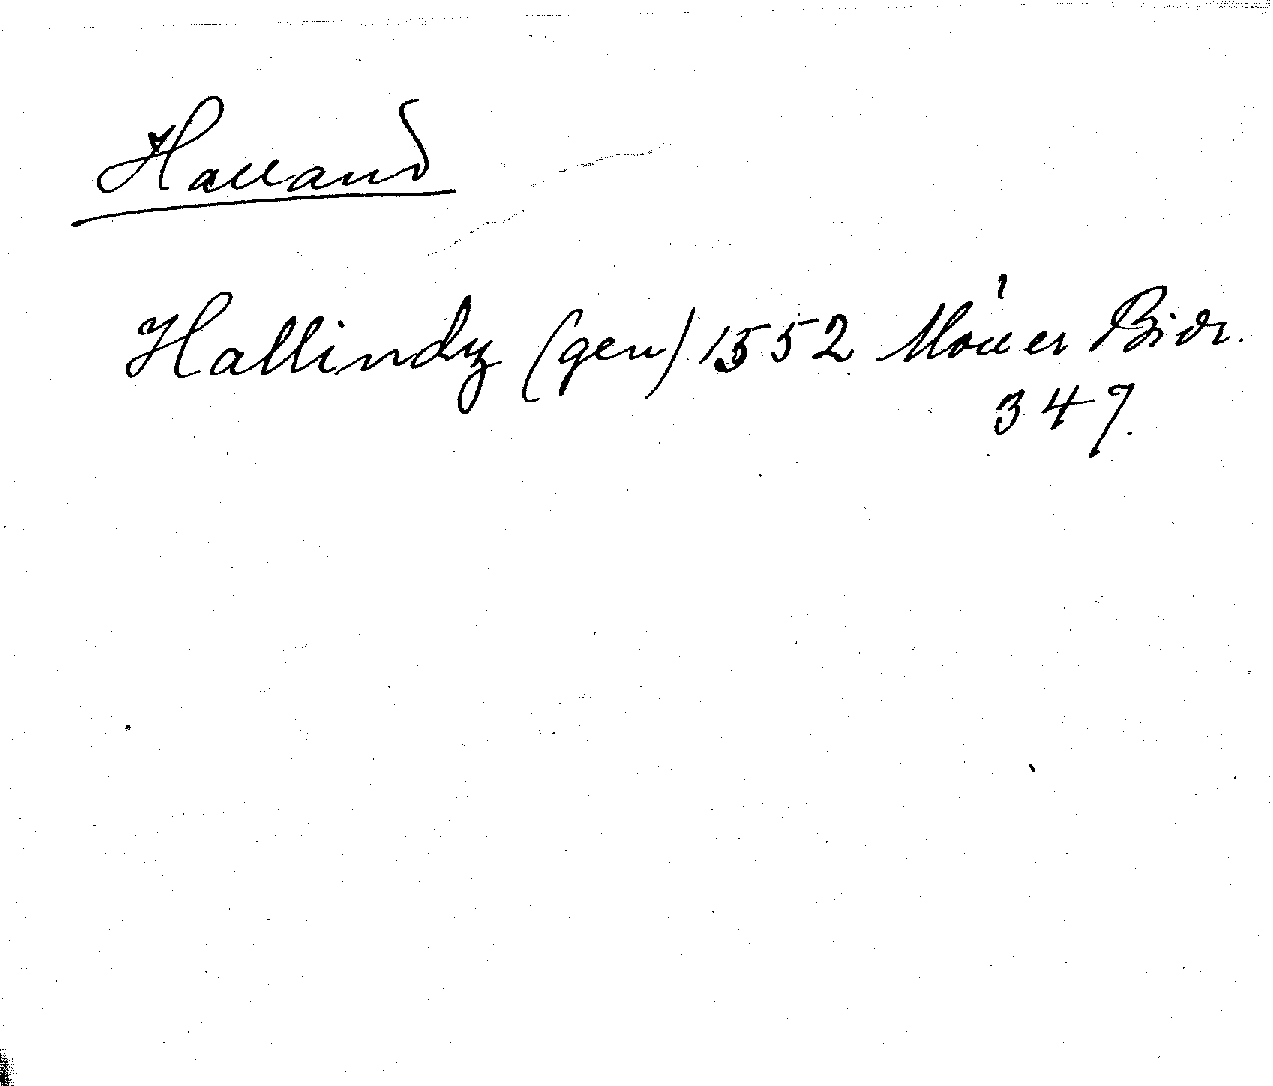 Halland
Hallindz (gen) 1552 Möller Bidr.
347.